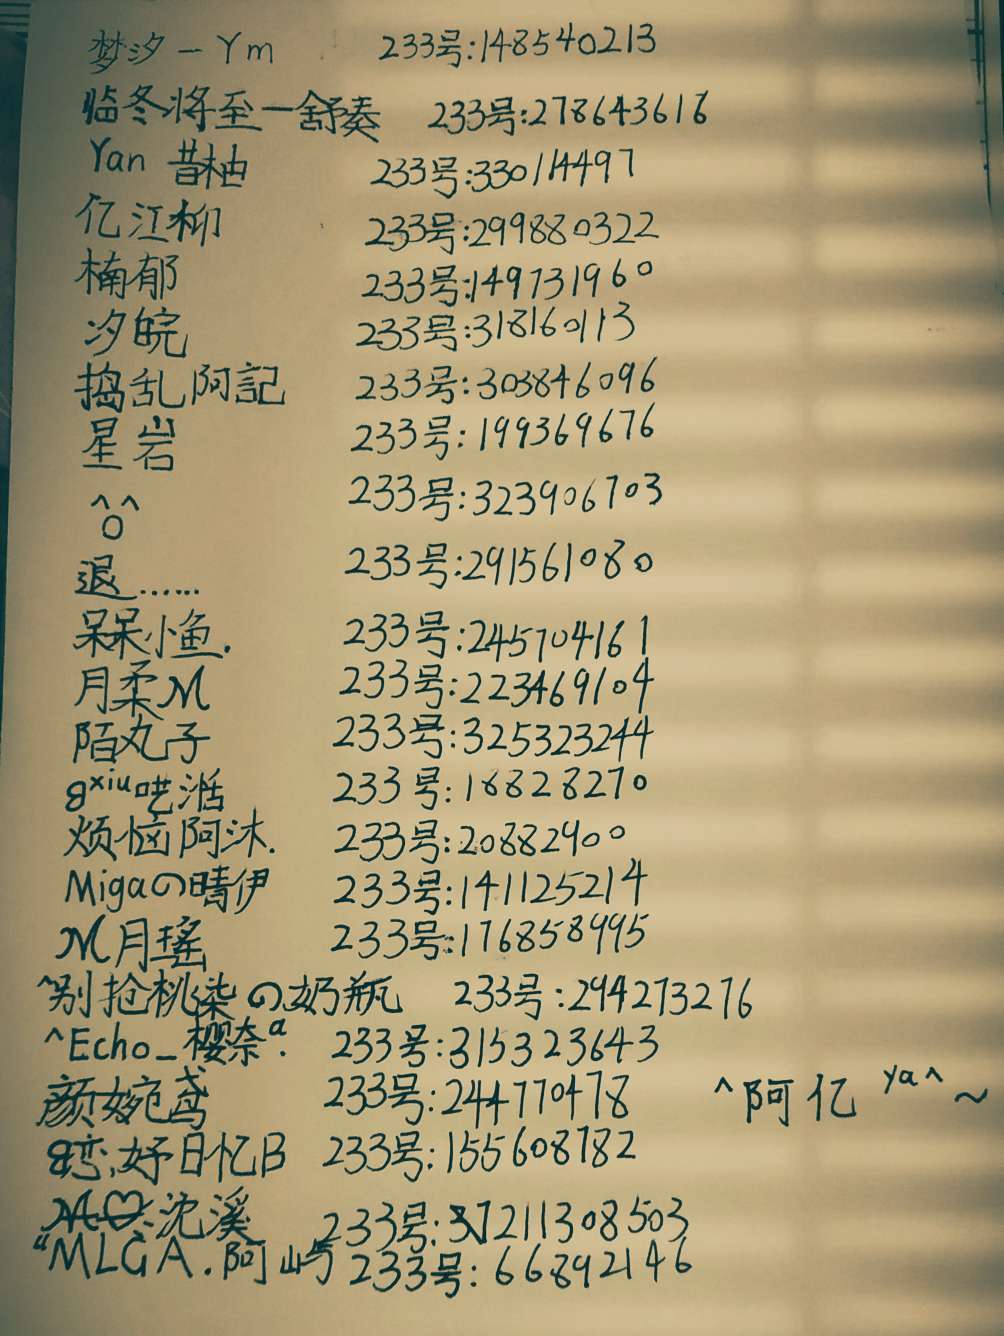 梦汐－Ym 233号:148540213
临冬将至一舒奏 233号:278643616
Yan 昔柚 233号:330114497
亿江柳 233号:299880322
楠郁 233号:149731960
汐皖 233号:318160113
捣乱阿記 233号:303846096
星岩 233号:199369676
^O^ 233号:323906703
退…… 233号:291561080
呆呆小鱼. 233号:245704161
月柔M 233号:223469104
陌丸子 233号:325323244
xiu 233号:18828270
烦恼阿沐. 233号:20882900
Migaの晴伊 233号:141125214
M月瑤 233号:176858995
^别抢桃染の奶瓶 233号:294273276
^Echo_樱奈ª. 233号:315323643
颜婉鸢 233号:244770478 ^阿亿 ya^~
恋,好日忆B 233号:155608782
沈溪 233号:211308503
“MLGA.阿屿 233号:66892146